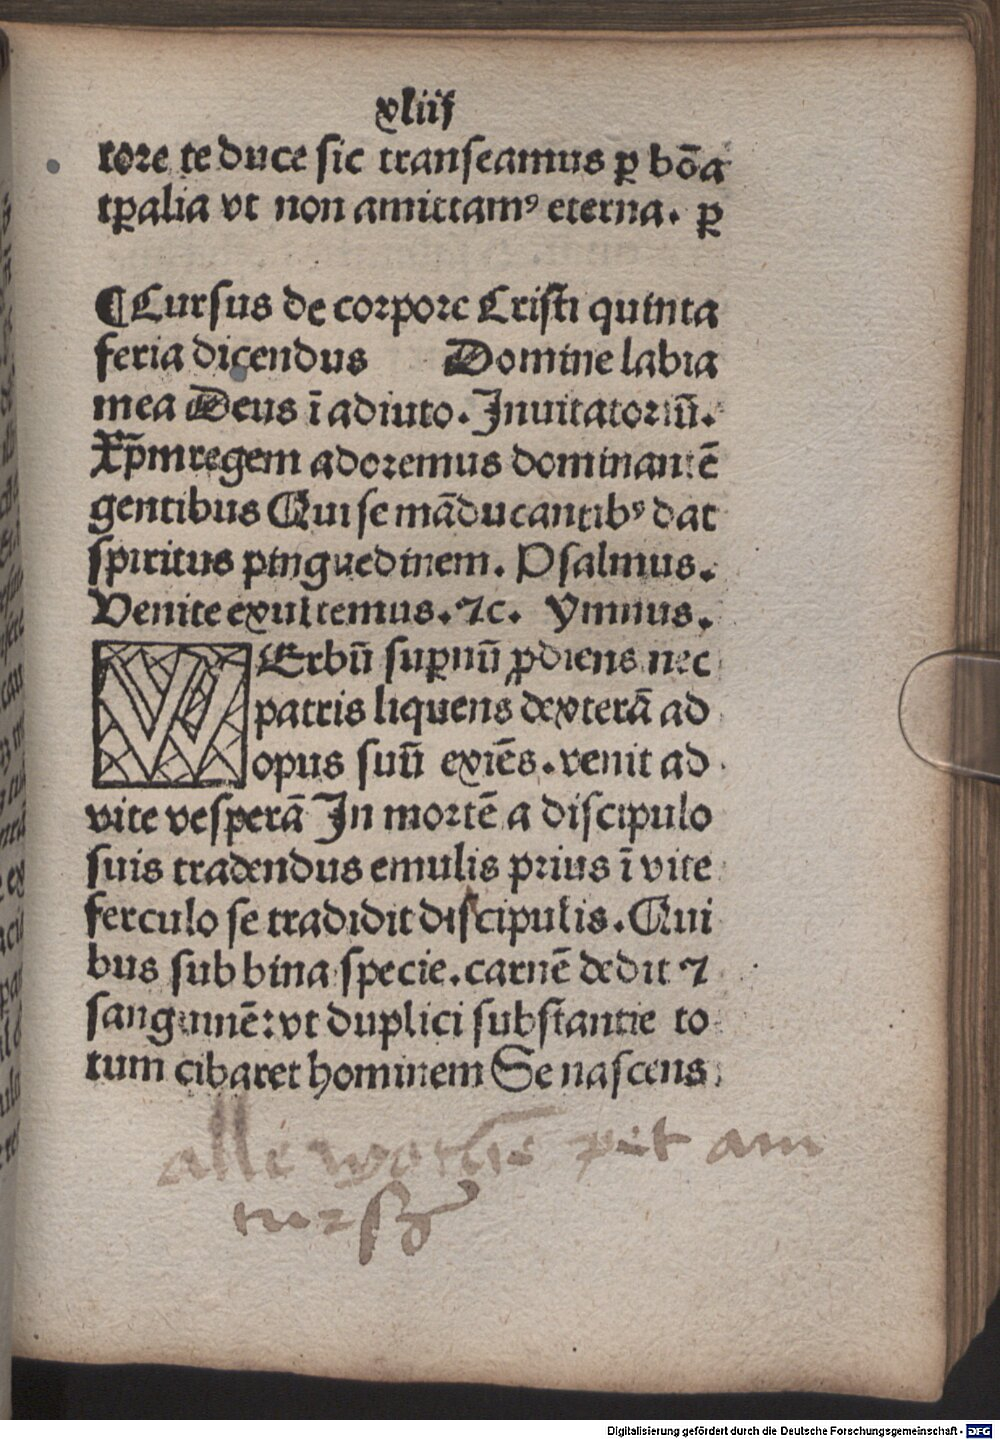 xliij
tore te duce sic transeamus ꝑ bōa
tꝑalia vt non amittamꝰ eterna. ꝑ
¶Cursus de corpore Cristi quinta
feria dicendus Domine labia
mea Deus ī adiuto. Inuitatoriū.
Xp̄m regem adoremus dominantē
gentibus Qui se mādu cantibꝰ dat
spiritus pinguedinem. Psalmus.
Venite exultemus. ⁊c. Ymnus.
VErbū suꝑnū ꝓdiens nec
patris liquens dexterā ad
opus suū exiēs. venit ad
vite vesperā In mortē a discipulo
suis tradendus emulis prius ī vite
ferculo se tradidit discipulis. Qui
bus sub bina specie. carnē dedit ⁊
sanguinē: vt duplici substantie to
tum cibaret hominem Se nascens
alle pit am